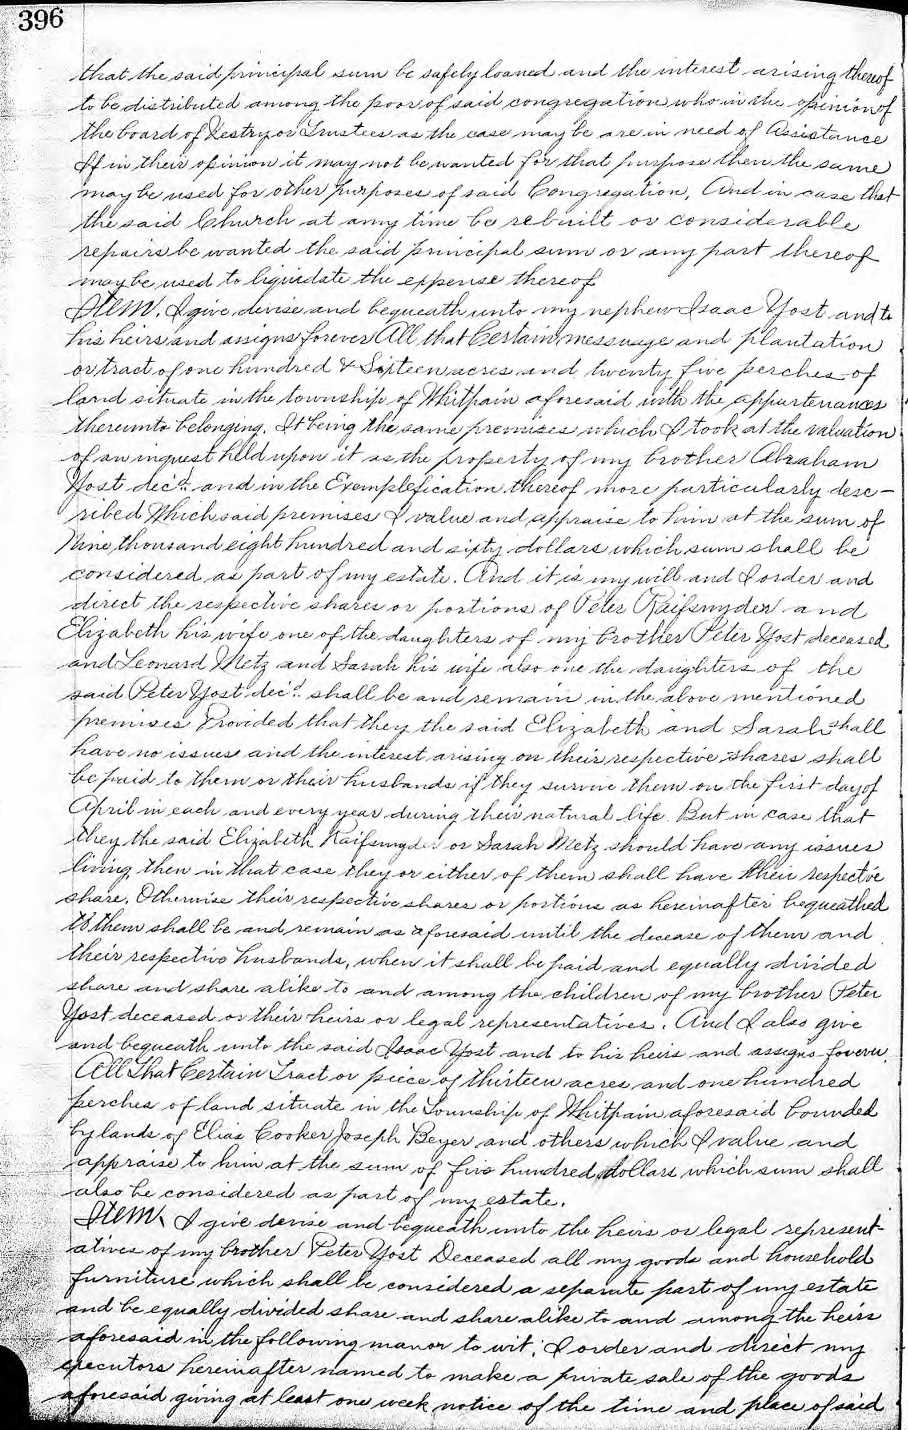 396
that the said principal sum be safely loaned and the interest arising thereof
to be distributed among the poor of said congregation who in the opinion of
the board of Vestry or Trustees as the case may be are in need of Assistance
If in their opinion it may not be wanted for that purpose then the same
may be used for other purposes of said Congregation, And in case that
the said Church at any time be rebuilt or considerable
repairs be wanted the said principal sum or any part thereof
may be used to liquidate the expense thereof
Item. I give devise and bequeath unto my nephew Isaac Yost and to
his heirs and assigns forever All that Certain messuage and plantation
or tract of one hundred & Sixteen acres and twenty five perches of
land situate in the township of Whitpain aforesaid with the appurtenances
thereunto belonging, It being the same premises which I took at the valuation
of an inquest held upon it as the property of my brother Abraham
Yost decd. and in the Exemplefication thereof more particularly desc-
ribed Which said premises I value and appraise to him at the sum of
Nine thousand eight hundred and sixty dollars which sum shall be
considered as part of my estate. And it is my will and I order and
direct the respective shares or portions of Peter Raifsnyder and
Elizabeth his wife one of the daughters of my brother Peter Yost deceased
and Leonard Metz and Sarah his wife also one the daughters of the
said Peter Yost decd. shall be and remain in the above mentioned
premises Provided that they the said Elizabeth and Sarah shall
have no issues and the interest arising on their respective shares shall
be paid to them or their husbands if they survive them on the first day of
April in each and every year during their natural life. But in case that
they the said Elizabeth Raifsnyder or Sarah Metz should have any issues
living then in that case they or either of them shall have their respective
share, Otherwise their respective shares or portions as hereinafter bequeathed
to them shall be and remain as aforesaid until the decease of them and
their respective husbands, when it shall be paid and equally divided
share and share alike to and among the children of my brother Peter
Yost deceased or their heirs or legal representatives. And I also give
and bequeath unto the said Isaac Yost and to his heirs and assigns forever.
All That Certain Tract or piece of thirteen acres and one hundred
perches of land situate in the Township of Whitpain aforesaid bounded
by lands of Elias Cooker Joseph Beyer and others which I value and
appraise to him at the sum of five hundred dollars which sum shall
also be considered as part of my estate.
Item. I give devise and bequeath unto the heirs or legal represent-
atives of my brother Peter Yost Deceased all my goods and household
furniture which shall be considered a separate part of my estate
and be equally divided share and share alike to and among the heirs
aforesaid in the following manor to wit; I order and direct my
executors hereinafter named to make a private sale of the goods
aforesaid giving at least one week notice of the time and place of said